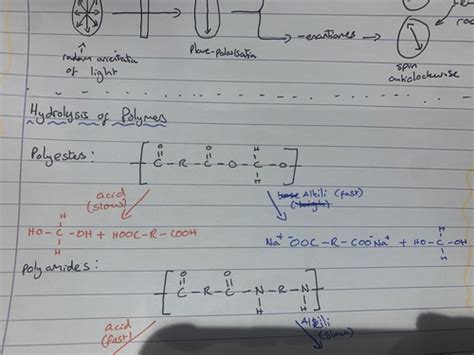 random orientation
of light
Plane-polarisation
enantiomers
spin
anticlockwise
Hydrolysis of Polymers
Polyesters:
O O H
C - R - C - O - C - O
H
acid
(slow)
Alkili (fast)
H
HO - C - OH + HOOC-R-COOH
H
Na⁺ ⁻OOC-R-COO⁻Na⁺ + HO-C-OH
H
H
polyamides:
O O
C - R - C - N - R - N
H H
acid
(fast)
Alkili
(slow)